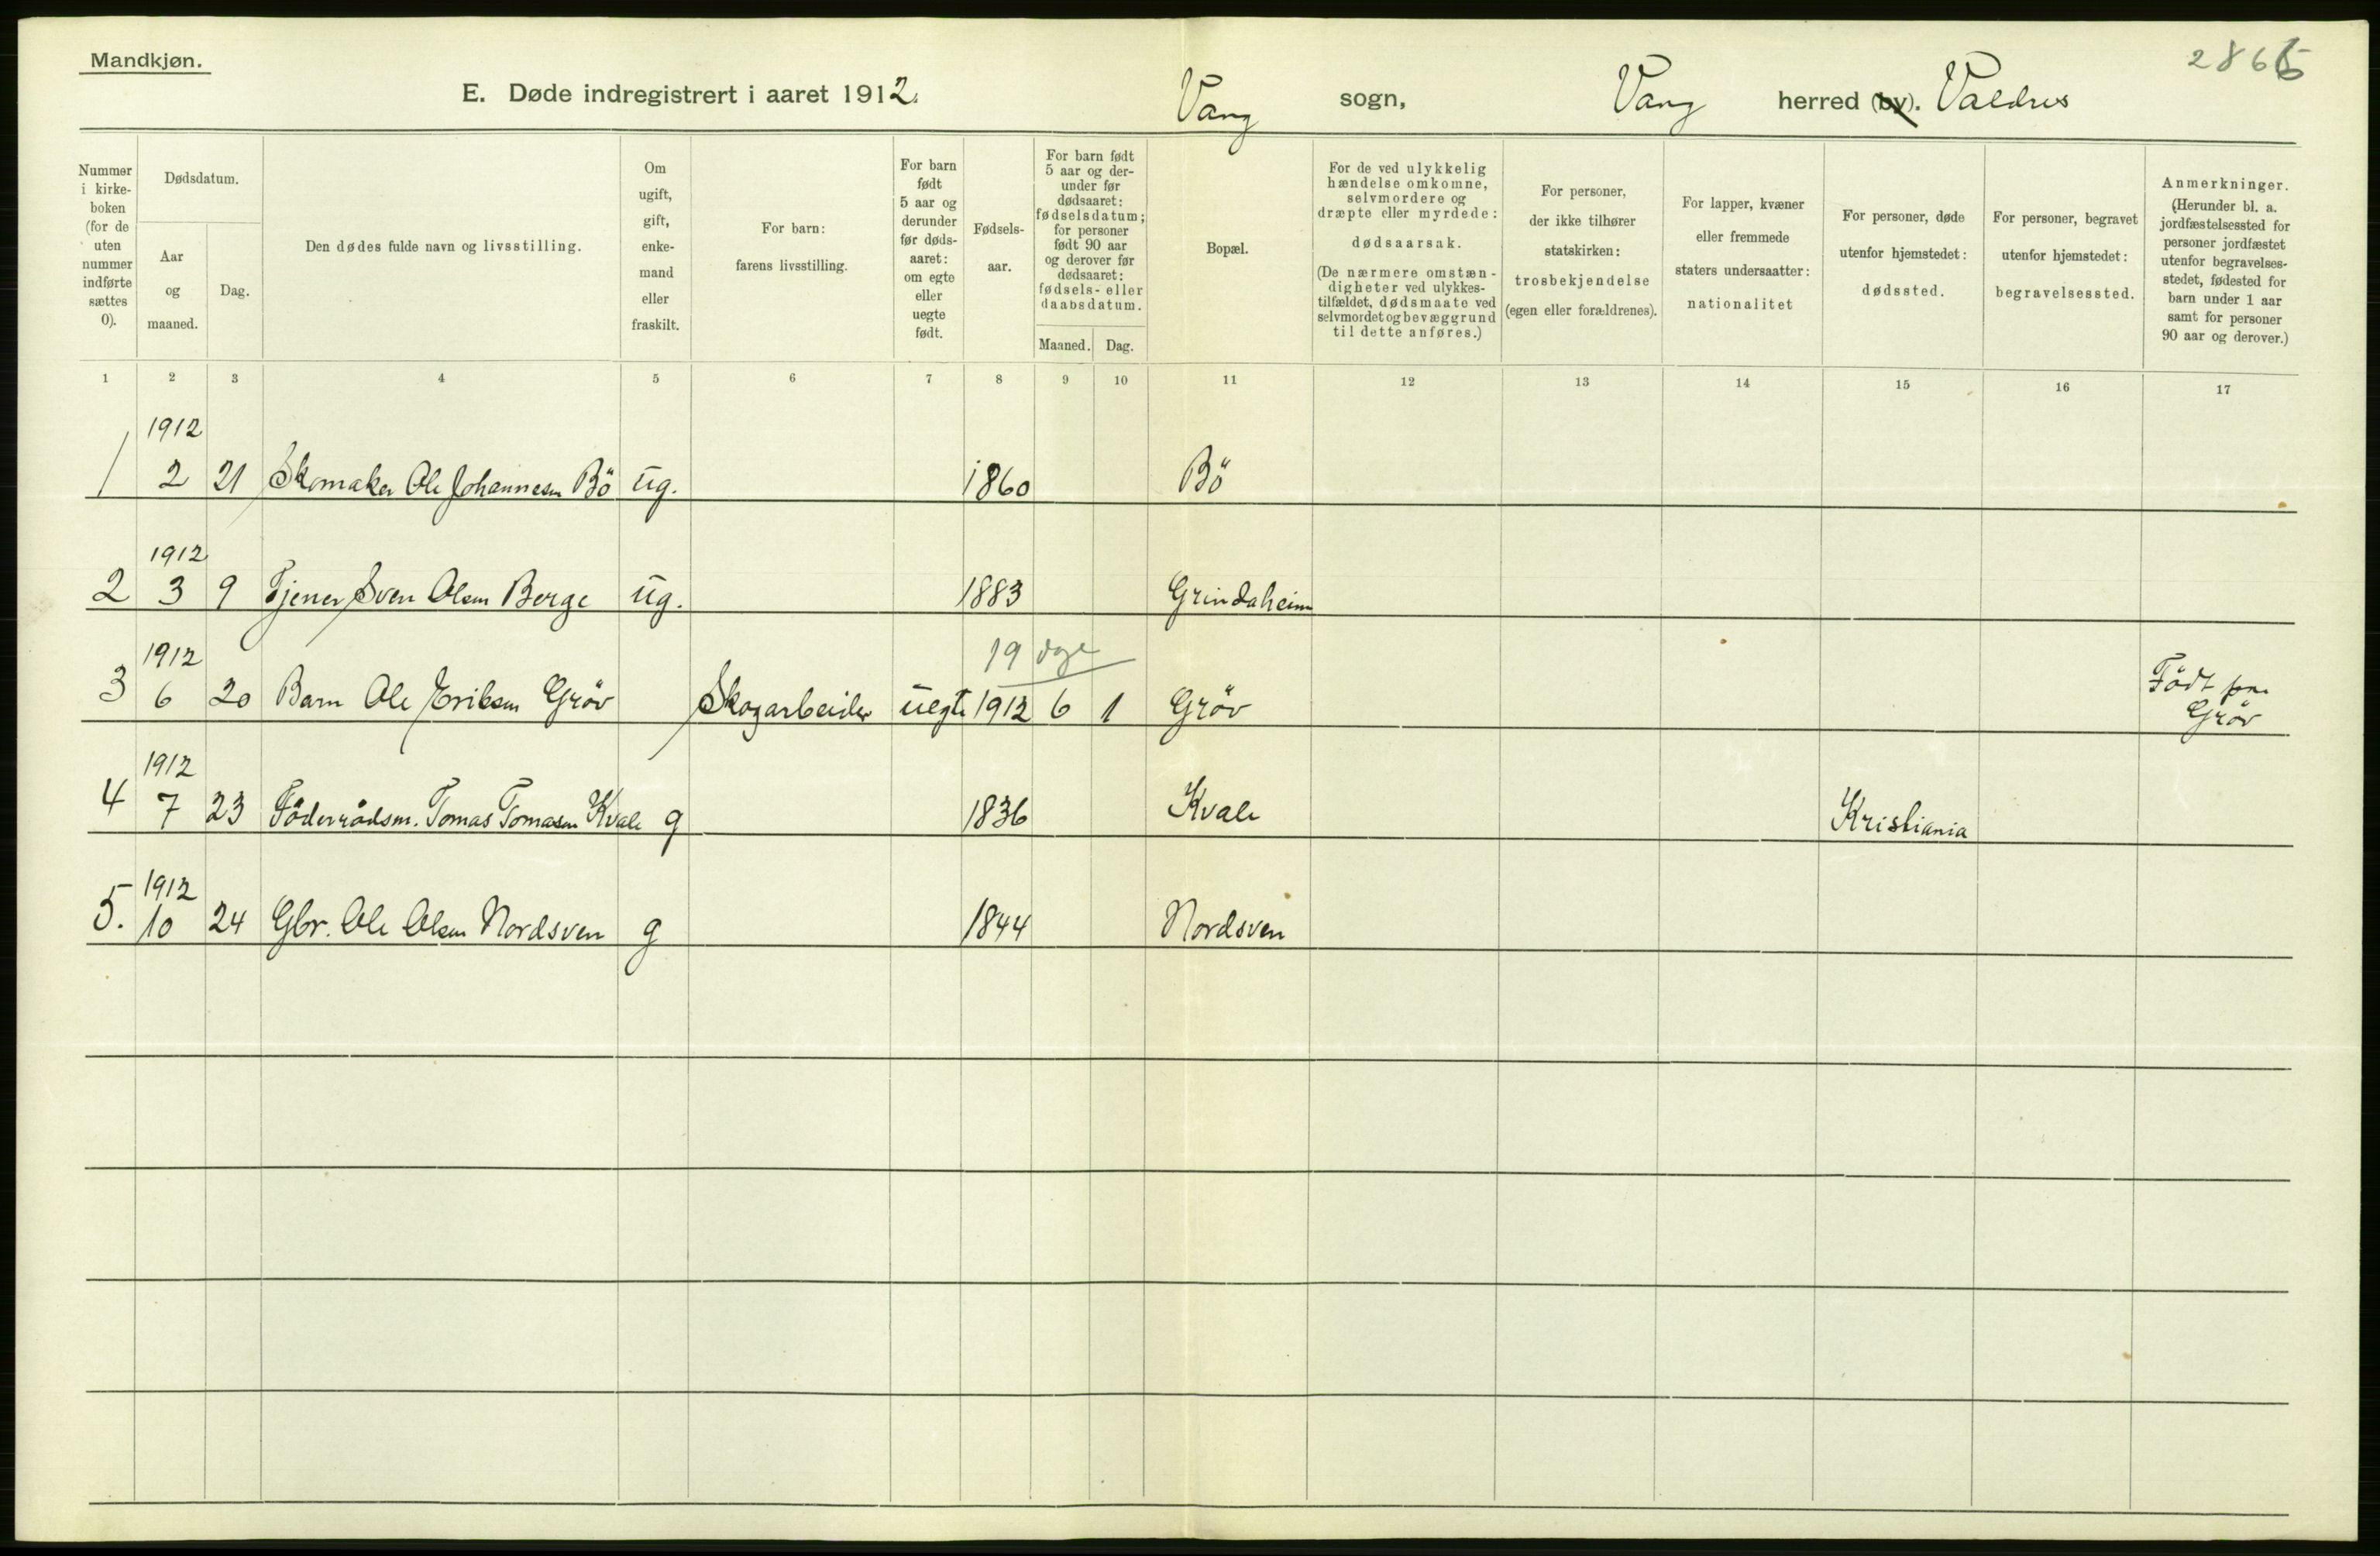 Mandkjøn.
2865
E. Døde indregistrert i aaret 1912. Vang sogn, Vang herred (by). Valdres
Nummer i kirke-boken (for de uten nummer indførte sættes 0).
Dødsdatum.
Aar og maaned.
Dag.
Den dødes fulde navn og livsstilling.
Om ugift, gift, enke-mand eller fraskilt.
For barn: farens livsstilling.
For barn født 5 aar og derunder før døds-aaret: om egte eller uegte født.
Fødsels-aar.
For barn født 5 aar og der-under før dødsaaret: fødselsdatum; for personer født 90 aar og derover før dødsaaret: fødsels- eller daabsdatum.
Maaned.
Dag.
Bopæl.
For de ved ulykkelig hændelse omkomne, selvmordere og dræpte eller myrdede: dødsaarsak. (De nærmere omstæn-digheter ved ulykkes-tilfældet, dødsmaate ved selvmordet og bevæggrund til dette anføres.)
For personer, der ikke tilhører statskirken: trosbekjendelse (egen eller forældrenes).
For lapper, kvæner eller fremmede staters undersaatter: nationalitet
For personer, døde utenfor hjemstedet: dødssted.
For personer, begravet utenfor hjemstedet: begravelsessted.
Anmerkninger. (Herunder bl. a. jordfæstelsessted for personer jordfæstet utenfor begravelses-stedet, fødested for barn under 1 aar samt for personer 90 aar og derover.)
1 2 3 4 5 6 7 8 9 10 11 12 13 14 15 16 17
1912
1 2 21 Skomaker Ole Johannesen Bö ug. 1860 Bö
1912
2 3 9 Tjener Sven Olsen Berge ug. 1883 Grindaheim
1912 19 dage
3 6 20 Barn Ole Eriksen Gröv Skogarbeider uegte 1912 6 1 Gröv Födt paa Gröv
1912
4 7 23 Föderrådsm. Tomas Tomasen Kvale g 1836 Kvale Kristiania
1912
5. 10 24 Gbr. Ole Olsen Nordsven g 1844 Nordsven